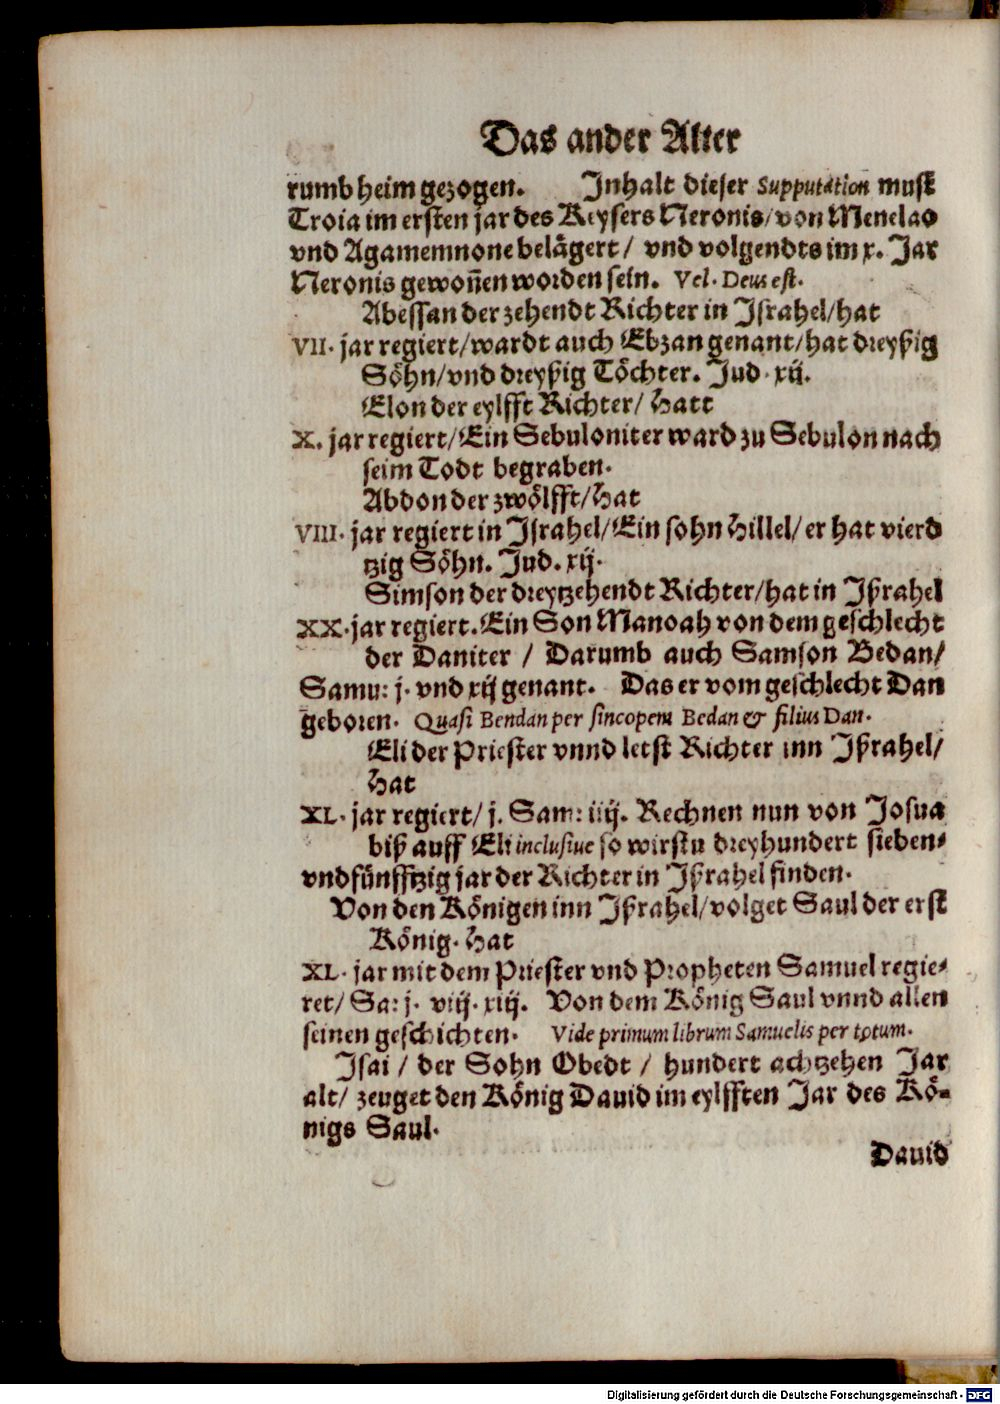 Das ander Alter
rumb heim gezogen. Inhalt dieser Supputation must
Troia im ersten jar des Keysers Neronis/ von Menelao
vnd Agamemnone belägert/ vnd volgendts im x. Jar
Neronis gewoñen worden sein. Vel. Deus est.
Abessan der zehendt Richter in Israhel/hat
VII. jar regiert/wardt auch Ebzan genant/hat dreyßig
Söhn/vnd dreyßig Töchter. Jud. xij.
Elon der eylfft Richter/ Hatt
X. jar regiert/Ein Sebuloniter ward zu Sebulon nach
seim Todt begraben.
Abdon der zwölfft/Hat
VIII. jar regiert in Israhel/Ein sohn Hillel/ er hat vierd
tzig Söhn. Jud. xij.
Simson der dreytzehendt Richter/hat in Ißrahel
XX. jar regiert. Ein Son Manoah von dem geschlecht
der Daniter / Darumb auch Samson Bedan/
Samu: j. vnd xij genant. Das er vom geschlecht Dan
geboren. Quasi Bendan per sincopem Bedan & filius Dan.
Eli der Priester vnnd letst Richter inn Ißrahel/
Hat
XL. jar regiert/ j. Sam: iiij. Rechnen nun von Josua
biß auff Eli inclusiue so wirstu dreyhundert sieben-
vndfünfftzig jar der Richter in Ißrahel finden.
Von den Königen inn Ißrahel/volget Saul der erst
König. Hat
XL. jar mit dem Priester vnd Propheten Samuel regie-
ret/ Sa: j. viij. xiij. Von dem König Saul vnnd allen
seinen geschichten. Vide primum librum Samuelis per totum.
Isai / der Sohn Obedt / hundert achtzehen Jar
alt/ zeuget den König Dauid im eylfften Jar des Kö-
nigs Saul.
Dauid
Digitalisierung gefördert durch die Deutsche Forschungsgemeinschaft - DFG